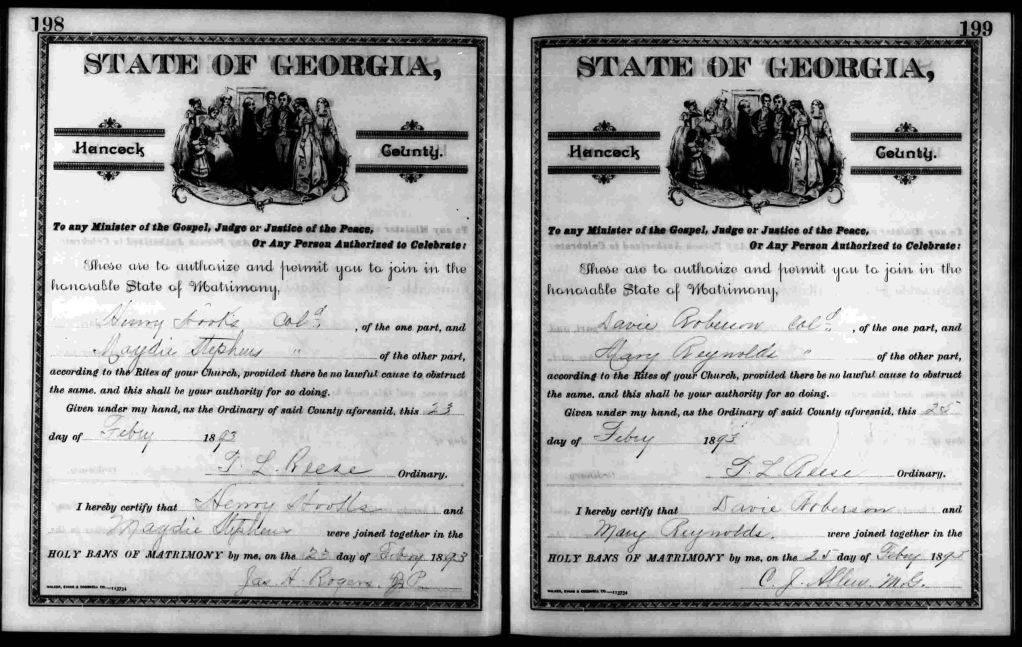 198
STATE OF GEORGIA,
Hancock County.
To any Minister of the Gospel, Judge or Justice of the Peace,
Or Any Person Authorized to Celebrate:
These are to authorize and permit you to join in the
honorable State of Matrimony,
Henry Col^d. , of the one part, and
Maydie Stephens " of the other part,
according to the Rites of your Church, provided there be no lawful cause to obstruct
the same, and this shall be your authority for so doing.
Given under my hand, as the Ordinary of said County aforesaid, this 23
day of Febry 1893
T. L. Reese Ordinary.
I hereby certify that Henry and
Maydie Stephens were joined together in the
HOLY BANS OF MATRIMONY by me, on the 23 day of Febry 1893
Jas. H. Rogers, J.P.
WALKER, EVANS & COGSWELL CO.—113724
199
STATE OF GEORGIA,
Hancock County.
To any Minister of the Gospel, Judge or Justice of the Peace,
Or Any Person Authorized to Celebrate:
These are to authorize and permit you to join in the
honorable State of Matrimony,
Davie Roberson Col^d. , of the one part, and
Mary Reynolds " of the other part,
according to the Rites of your Church, provided there be no lawful cause to obstruct
the same, and this shall be your authority for so doing.
Given under my hand, as the Ordinary of said County aforesaid, this 25
day of Febry 1893
T. L. Reese Ordinary.
I hereby certify that Davie Roberson and
Mary Reynolds. were joined together in the
HOLY BANS OF MATRIMONY by me, on the 25 day of Febry
C. J. Allen, M.G.
WALKER, EVANS & COGSWELL CO.—113724